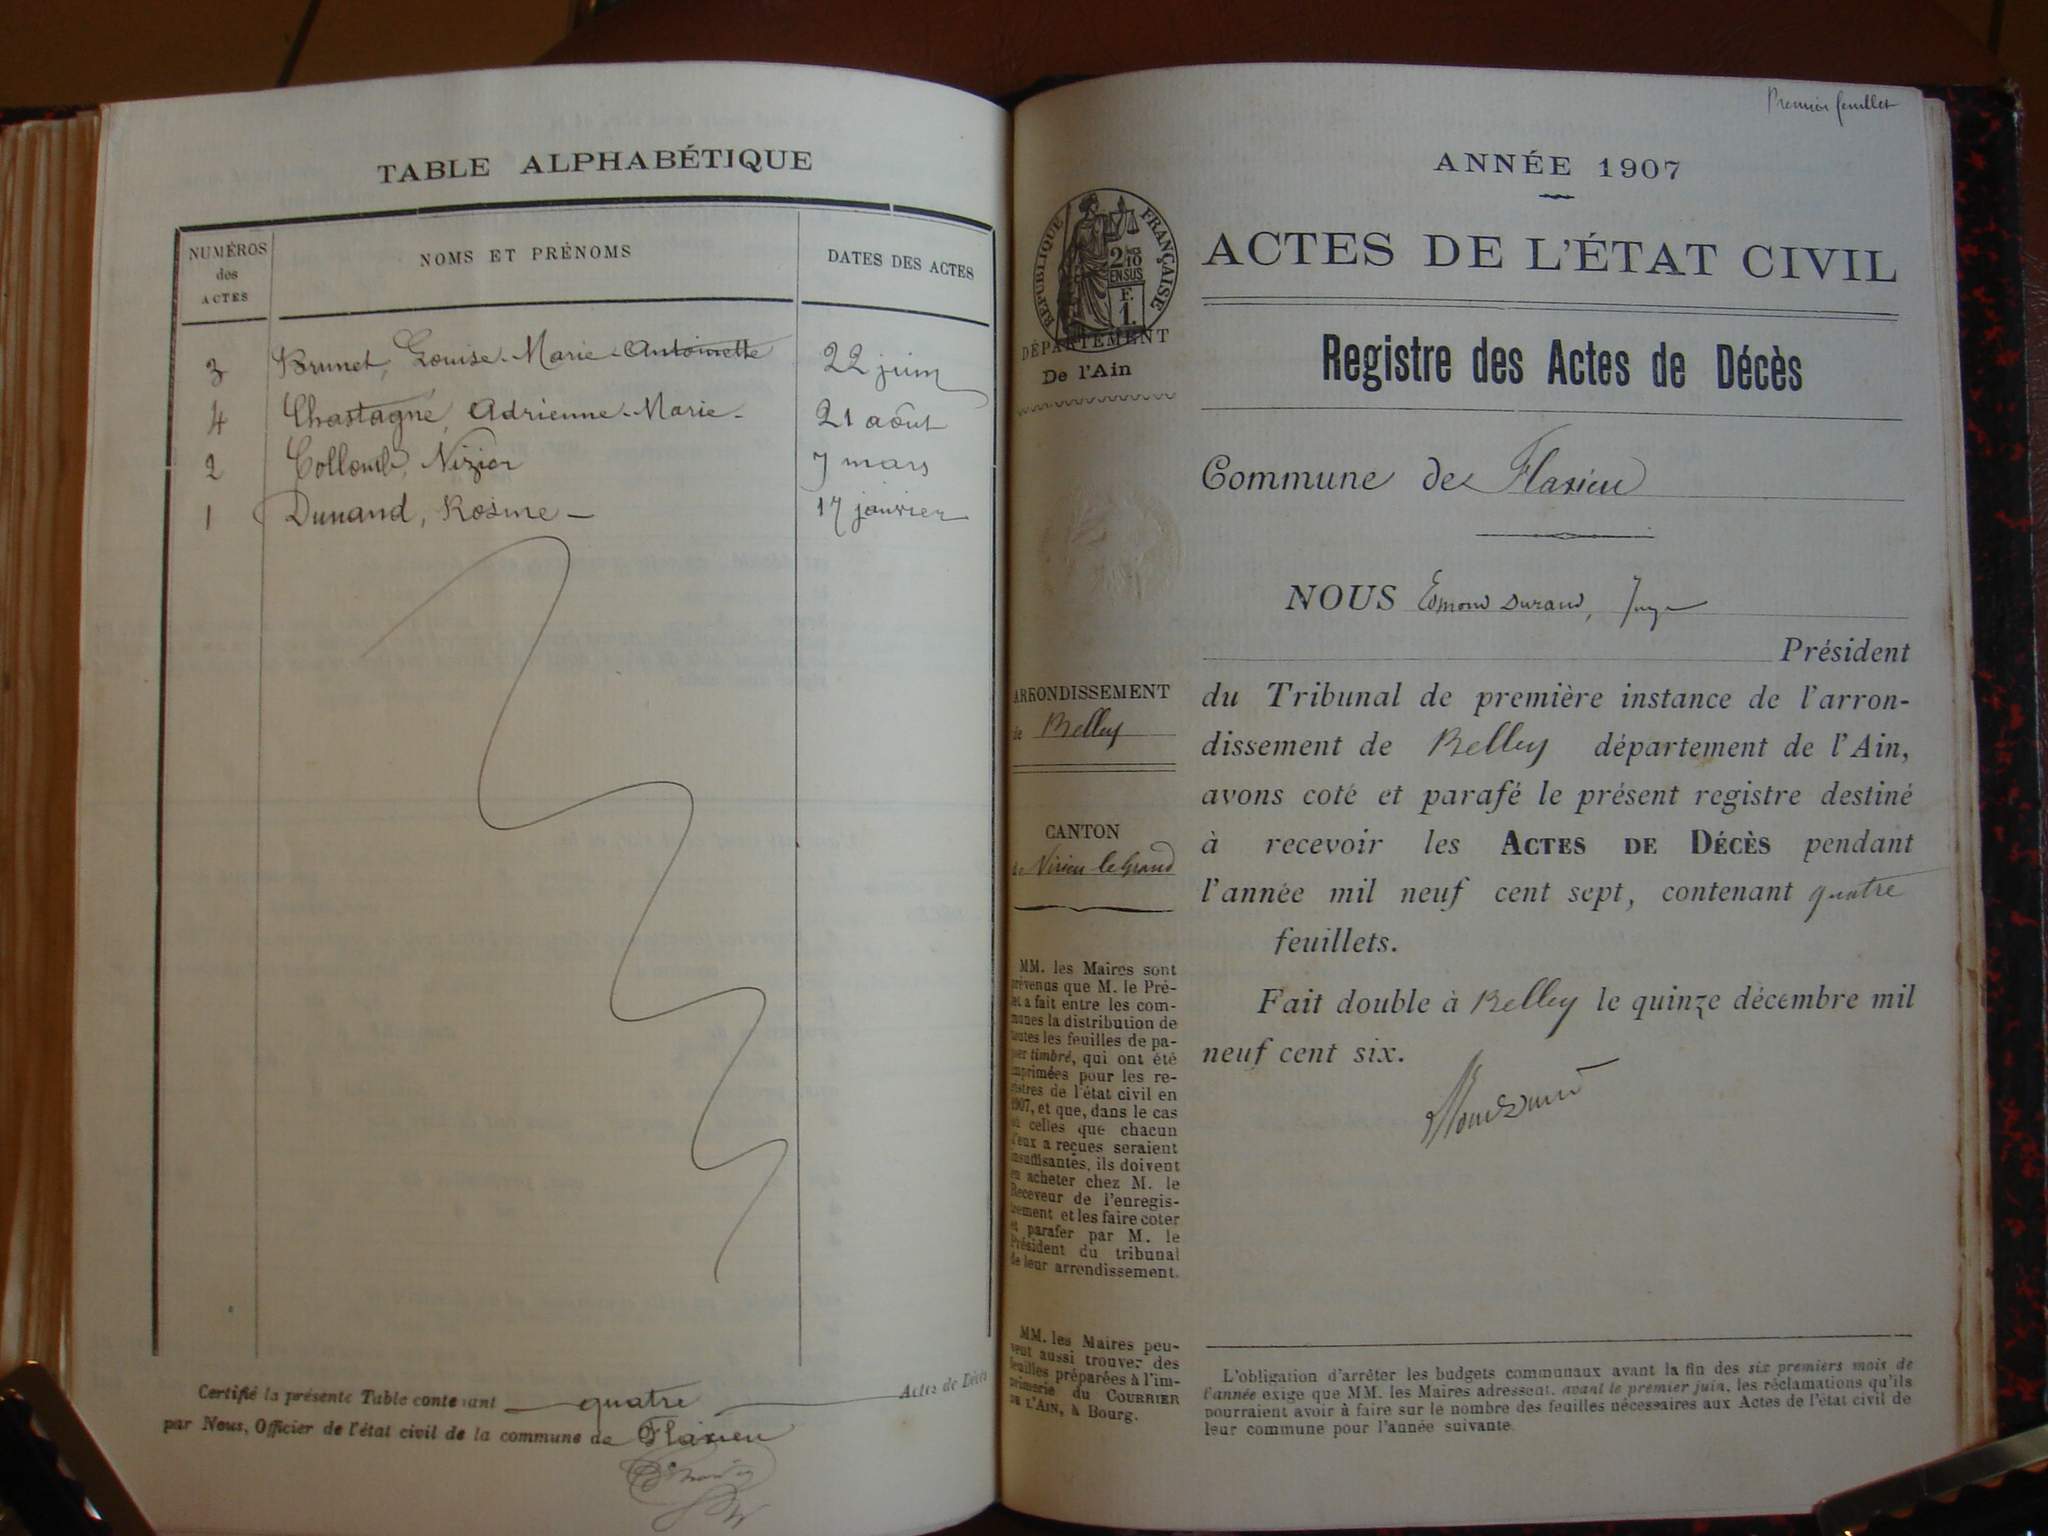 TABLE ALPHABÉTIQUE
NUMÉROS des ACTES
NOMS ET PRÉNOMS
DATES DES ACTES
3 Brunet, Louise-Marie-Antoinette 22 juin
4 Chastagne, Adrienne-Marie- 21 août
2 Collomb, Nizier 7 mars
1 Dunand, Rosine 17 janvier
Certifié la présente Table contenant quatre Actes de Décès
par Nous, Officier de l'état civil de la commune de Flaxieu
Premier feuillet
ANNÉE 1907
RÉPUBLIQUE FRANÇAISE
2/10 EN SUS
F. 1.
DÉPARTEMENT
De l'Ain
ARRONDISSEMENT
de Belley
CANTON
de Virieu le Grand
MM. les Maires sont
prévenus que M. le Pré-
fet a fait entre les com-
munes la distribution de
toutes les feuilles de pa-
pier timbré, qui ont été
imprimées pour les re-
gistres de l'état civil en
1907, et que, dans le cas
où celles que chacun
d'eux a reçues seraient
insuffisantes, ils doivent
en acheter chez M. le
Receveur de l'enregis-
trement et les faire coter
et parafer par M. le
Président du tribunal
de leur arrondissement.
MM. les Maires peu-
vent aussi trouver des
feuilles préparées à l'im-
primerie du COURRIER
DE L'AIN, à Bourg.
ACTES DE L'ÉTAT CIVIL
Registre des Actes de Décès
Commune de Flaxieu
NOUS Edmond Durand, Juge
Président
du Tribunal de première instance de l'arron-
dissement de Belley département de l'Ain,
avons coté et parafé le présent registre destiné
à recevoir les ACTES DE DÉCÈS pendant
l'année mil neuf cent sept, contenant quatre
feuillets.
Fait double à Belley le quinze décembre mil
neuf cent six.
L'obligation d'arrêter les budgets communaux avant la fin des six premiers mois de
l'année exige que MM. les Maires adressent, avant le premier juin, les réclamations qu'ils
pourraient avoir à faire sur le nombre des feuilles nécessaires aux Actes de l'état civil de
leur commune pour l'année suivante.